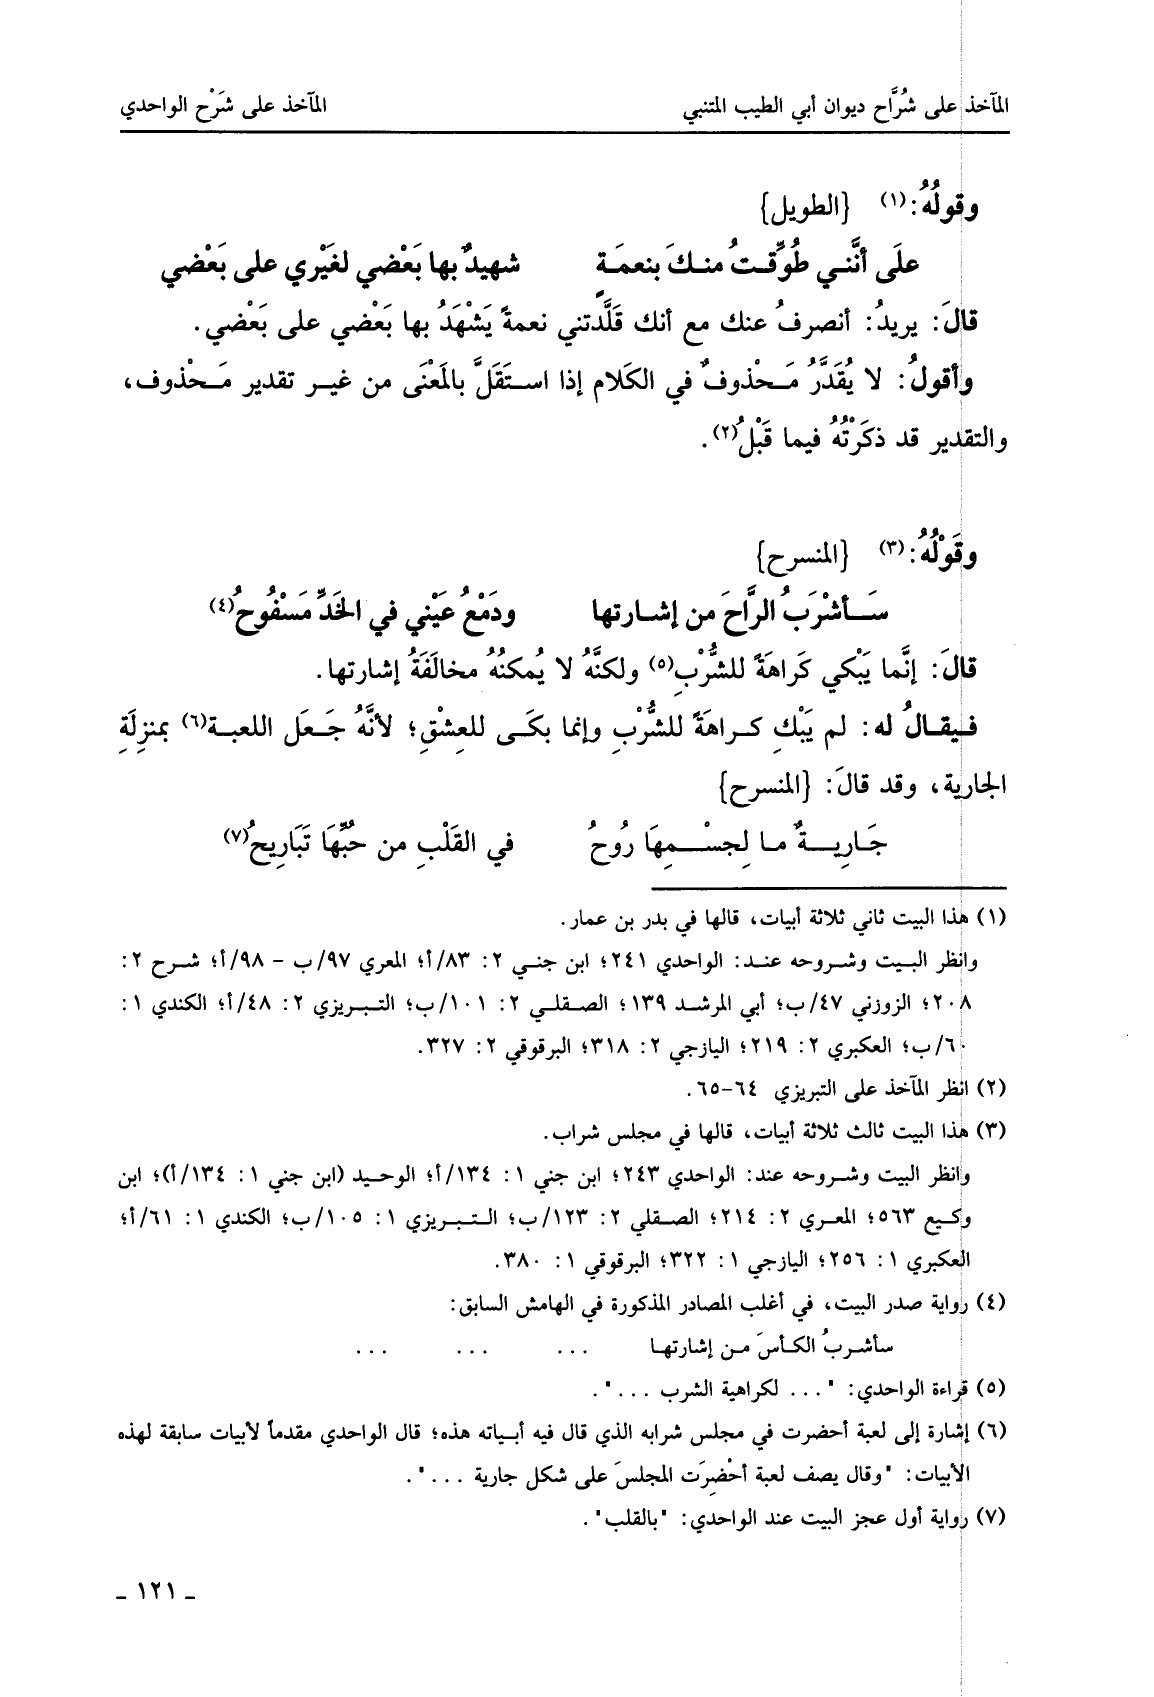 المآخذ على شُرَّاح ديوان أبي الطيب المتنبي المآخذ على شَرْح الواحدي
وقولُهُ:(١) {الطويل}
علَى أنَّني طُوِّقتُ منكَ بنعمَةٍ شهيدٌ بها بَعْضي لغَيْري على بَعْضي
قالَ: يريدُ: أنصرفُ عنك مع أنك قَلَّدتني نعمةً يَشْهَدُ بها بَعْضي على بَعْضي.
وأقولُ: لا يُقَدَّرُ مَحْذوفٌ في الكَلام إذا استَقَلَّ بالمَعْنَى من غير تقدير مَحْذوف،
والتقدير قد ذكَرْتُهُ فيما قَبْلُ(٢).
وقَوْلُهُ:(٣) {المنسرح}
سَأشْرَبُ الرَّاحَ من إشارتها ودَمْعُ عَيْني في الخَدِّ مَسْفُوحُ(٤)
قالَ: إنَّما يَبْكي كَراهَةً للشُّرْبِ(٥) ولكنَّهُ لا يُمكنُهُ مخالَفَةُ إشارتها.
فيقالُ له: لم يَبْكِ كراهَةً للشُّرْبِ وإنما بكَى للعِشْقِ؛ لأنَّهُ جَعَل اللعبة(٦) بمنزِلَةِ
الجارية، وقد قالَ: {المنسرح}
جَاريةٌ ما لِجسْمِهَا رُوحُ في القَلْبِ من حُبِّهَا تَبَاريحُ(٧)
(١) هذا البيت ثاني ثلاثة أبيات، قالها في بدر بن عمار.
وانظر البيت وشروحه عند: الواحدي ٢٤١؛ ابن جني ٢: ٨٣/أ؛ المعري ٩٧/ب - ٩٨/أ؛ شرح ٢:
٢٠٨؛ الزوزني ٤٧/ب؛ أبي المرشد ١٣٩؛ الصقلي ٢: ١٠١/ب؛ التبريزي ٢: ٤٨/أ؛ الكندي ١:
٦٠/ب؛ العكبري ٢: ٢١٩؛ اليازجي ٢: ٣١٨؛ البرقوقي ٢: ٣٢٧.
(٢) انظر المآخذ على التبريزي ٦٤-٦٥.
(٣) هذا البيت ثالث ثلاثة أبيات، قالها في مجلس شراب.
وانظر البيت وشروحه عند: الواحدي ٢٤٣؛ ابن جني ١: ١٣٤/أ؛ الوحيد (ابن جني ١: ١٣٤/أ)؛ ابن
وكيع ٥٦٣؛ المعري ٢: ٢١٤؛ الصقلي ٢: ١٢٣/ب؛ التبريزي ١: ١٠٥/ب؛ الكندي ١: ٦١/أ؛
العكبري ١: ٢٥٦؛ اليازجي ١: ٣٢٢؛ البرقوقي ١: ٣٨٠.
(٤) رواية صدر البيت، في أغلب المصادر المذكورة في الهامش السابق:
سأشربُ الكأسَ من إشارتها ... ... ...
(٥) قراءة الواحدي: "... لكراهية الشرب ...".
(٦) إشارة إلى لعبة أحضرت في مجلس شرابه الذي قال فيه أبياته هذه؛ قال الواحدي مقدماً لأبيات سابقة لهذه
الأبيات: "وقال يصف لعبة أحْضِرَت المجلسَ على شكل جارية ...".
(٧) رواية أول عجز البيت عند الواحدي: "بالقلب".
ـ ١٢١ ـ